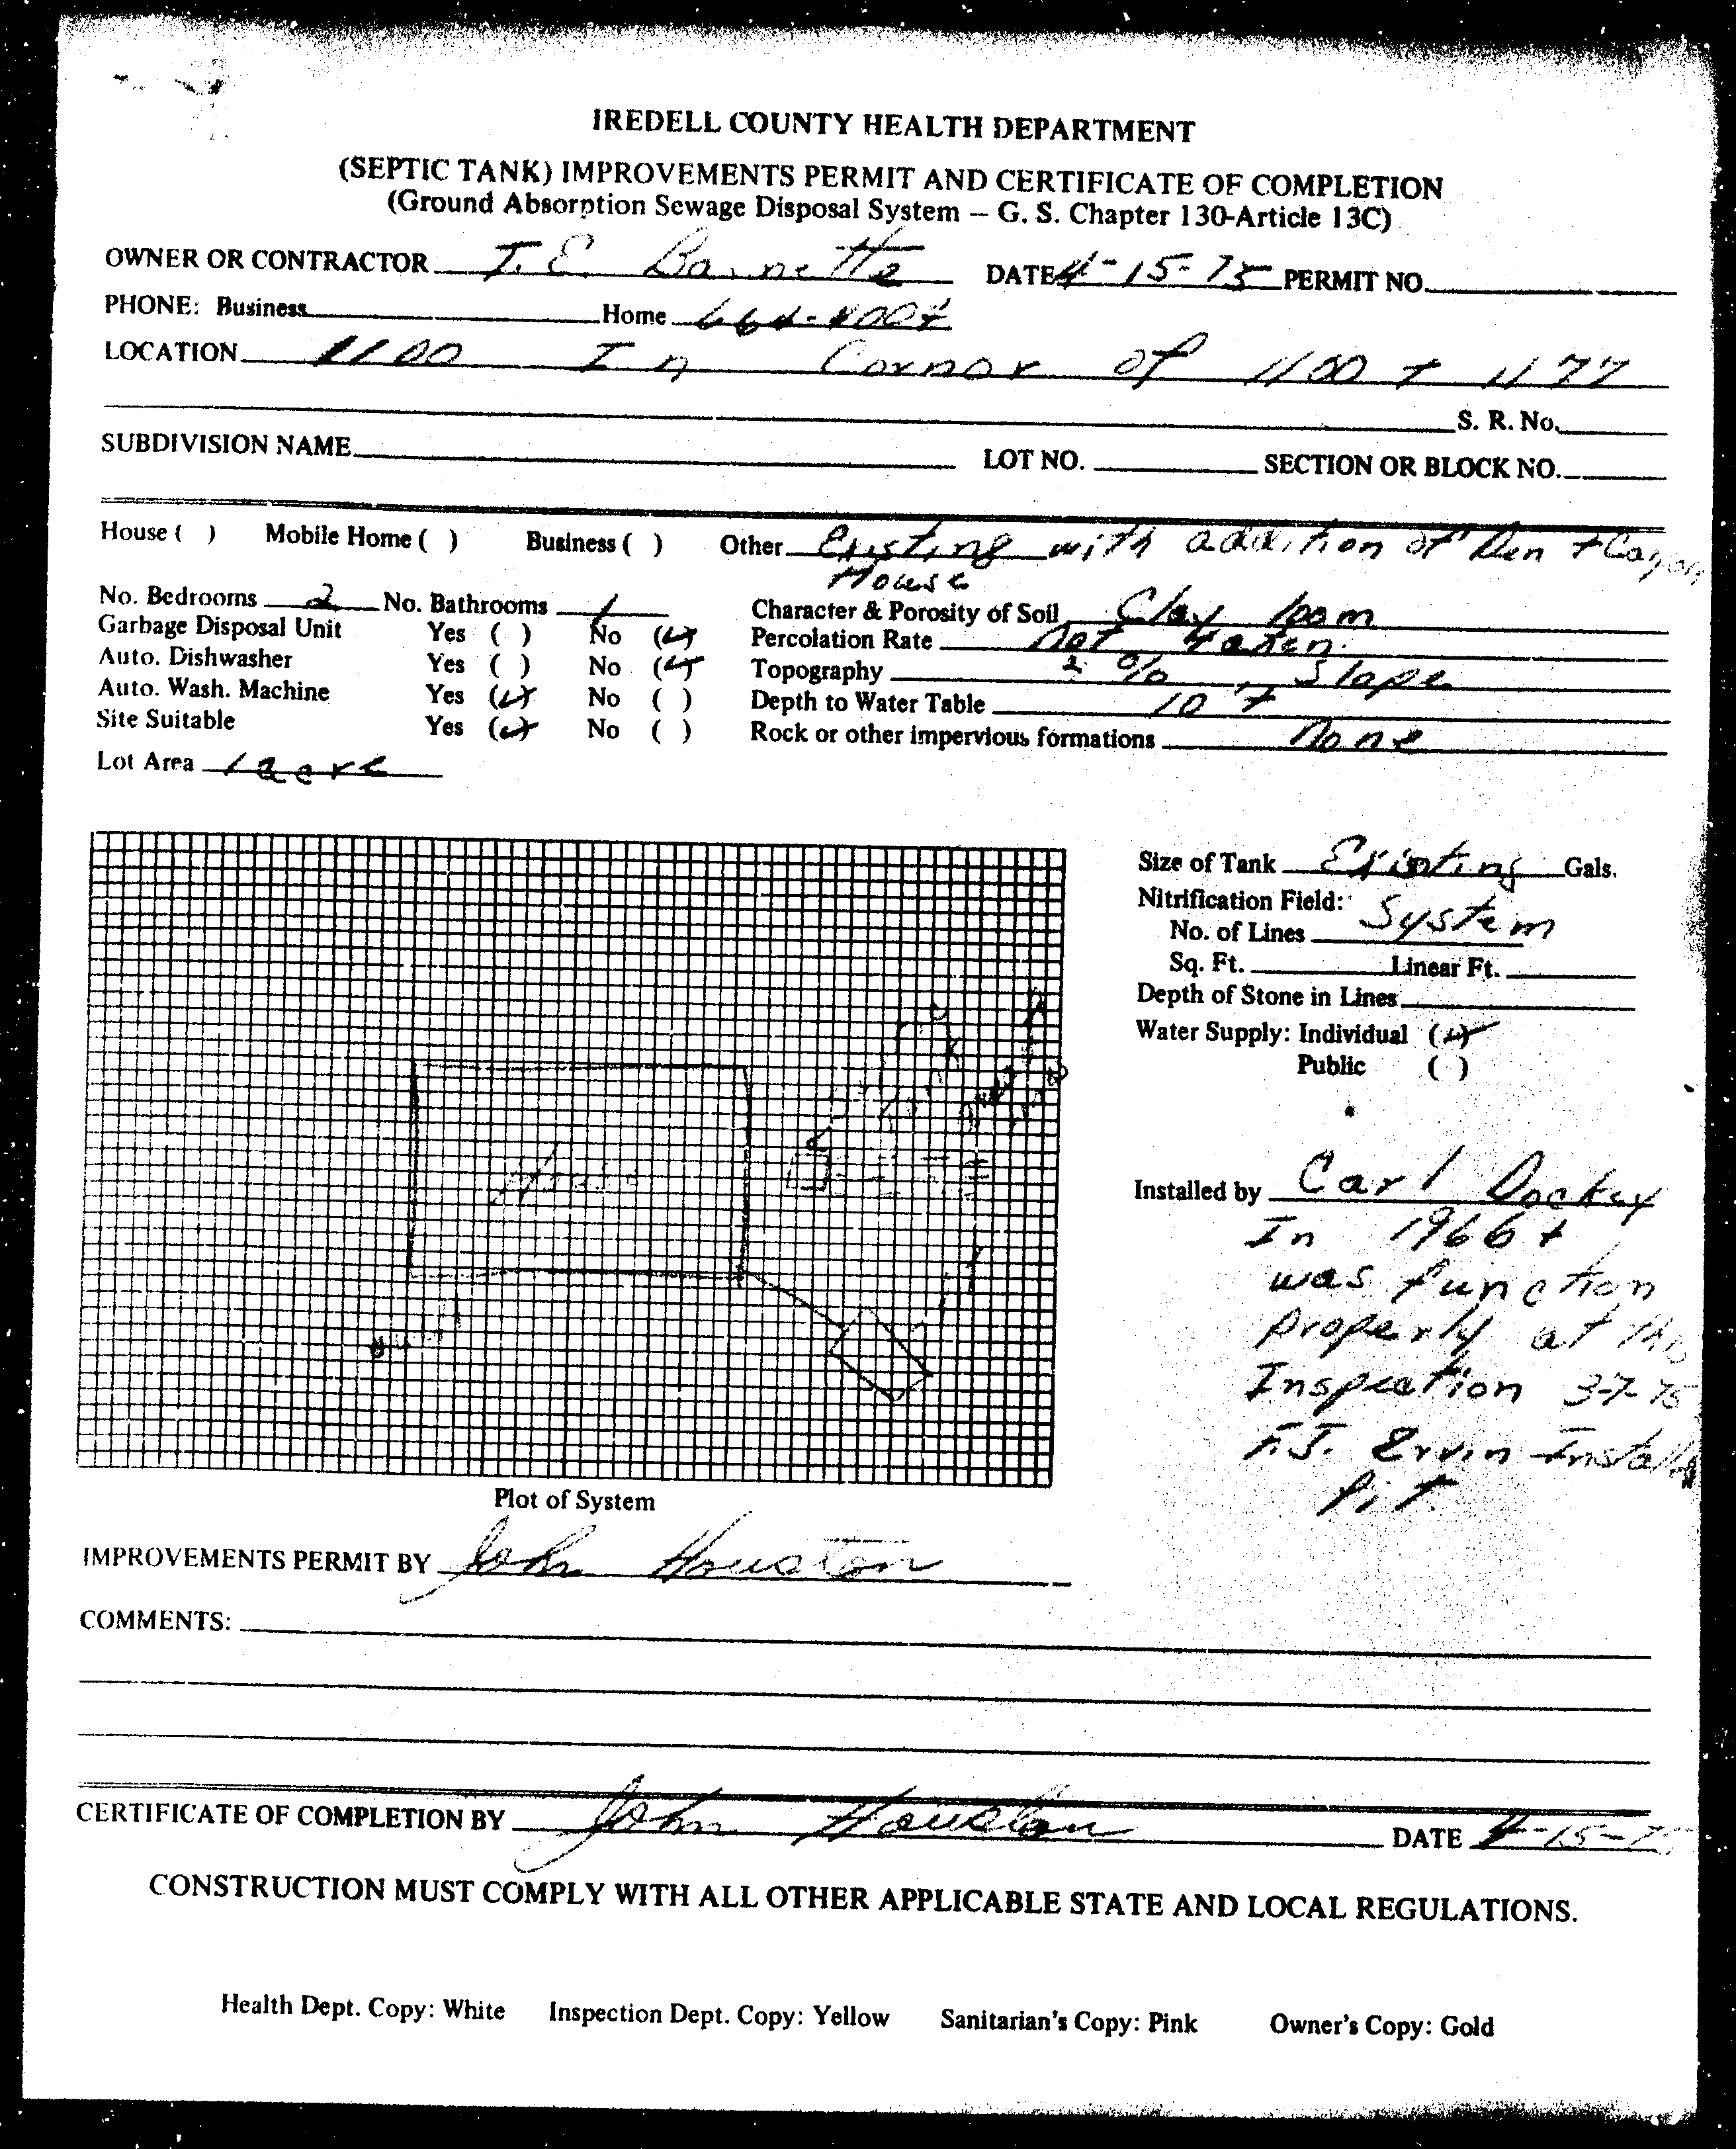 IREDELL COUNTY HEALTH DEPARTMENT
(SEPTIC TANK) IMPROVEMENTS PERMIT AND CERTIFICATE OF COMPLETION
(Ground Absorption Sewage Disposal System – G. S. Chapter 130-Article 13C)
OWNER OR CONTRACTOR T. E. Barnette DATE 4-15-75 PERMIT NO.
PHONE: Business Home
LOCATION 1100 In Cornor of 1100 + 1177
S. R. No.
SUBDIVISION NAME LOT NO. SECTION OR BLOCK NO.
House ( ) Mobile Home ( ) Business ( ) Other Existing with addition of Den +
House
No. Bedrooms 2 No. Bathrooms 1 Character & Porosity of Soil Clay loam
Garbage Disposal Unit Yes ( ) No (✓) Percolation Rate not taken.
Auto. Dishwasher Yes ( ) No (✓) Topography 2 % Slope
Auto. Wash. Machine Yes (✓) No ( ) Depth to Water Table 10 +
Site Suitable Yes (✓) No ( ) Rock or other impervious formations none
Lot Area 1 acre
Size of Tank Existing Gals.
Nitrification Field: System
No. of Lines
Sq. Ft. Linear Ft.
Depth of Stone in Lines
Water Supply: Individual (✓)
Public ( )
Installed by Carl
In 1966 +
was function
properly at this
Inspection 3-7-75
F.J. Ervin Install
pit
Plot of System
IMPROVEMENTS PERMIT BY John Houston
COMMENTS:
CERTIFICATE OF COMPLETION BY John Houston DATE 4-15-75
CONSTRUCTION MUST COMPLY WITH ALL OTHER APPLICABLE STATE AND LOCAL REGULATIONS.
Health Dept. Copy: White Inspection Dept. Copy: Yellow Sanitarian's Copy: Pink Owner's Copy: Gold